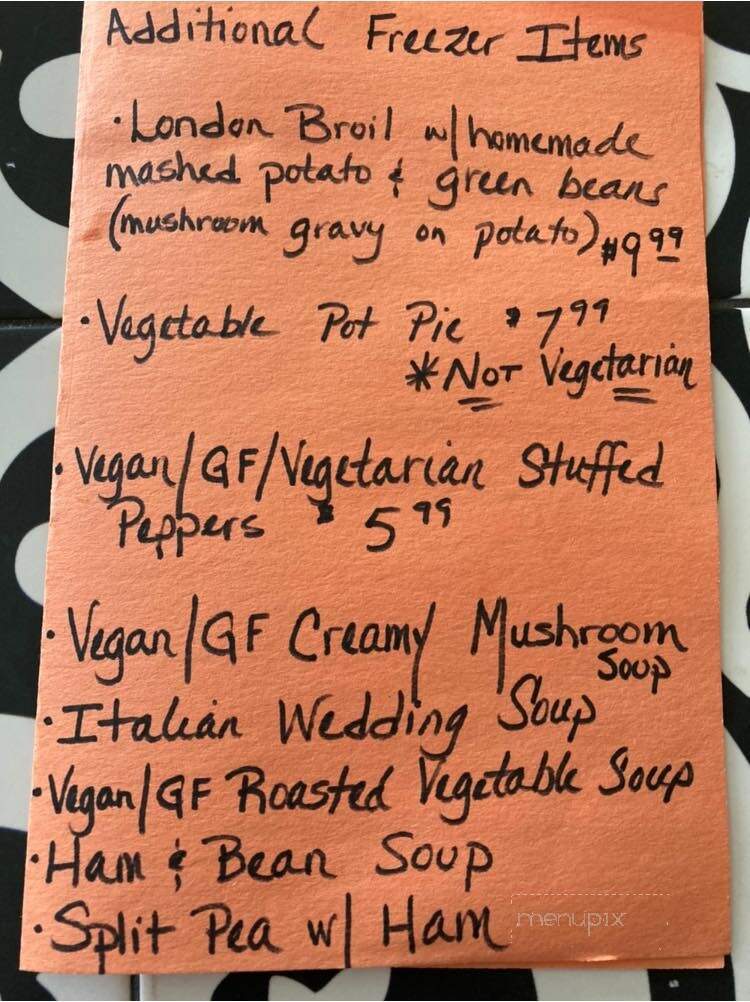 Additional Freezer Items
• London Broil w/ homemade
mashed potato & green beans
(mushroom gravy on potato) $9.99
• Vegetable Pot Pie $7.99
*NOT Vegetarian
• Vegan/GF/Vegetarian Stuffed
Peppers $5.99
• Vegan/GF Creamy Mushroom
Soup
• Italian Wedding Soup
• Vegan/GF Roasted Vegetable Soup
• Ham & Bean Soup
• Split Pea w/ Ham
menupix